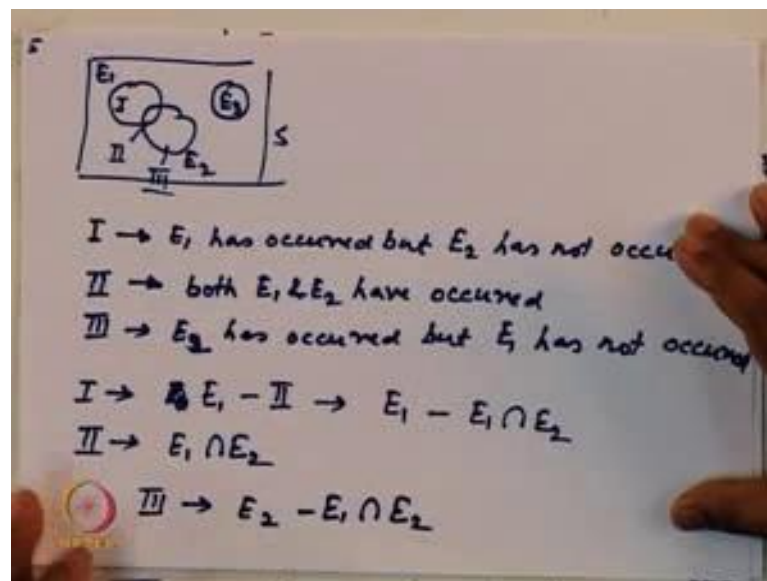 E₁
I
E₃
S
II
E₂
III
I → E₁ has occurred but E₂ has not occu
II → both E₁ & E₂ have occured
III → E₂ has occurred but E₁ has not occurred
I → E₁ - II → E₁ - E₁ ∩ E₂
II → E₁ ∩ E₂
III → E₂ - E₁ ∩ E₂